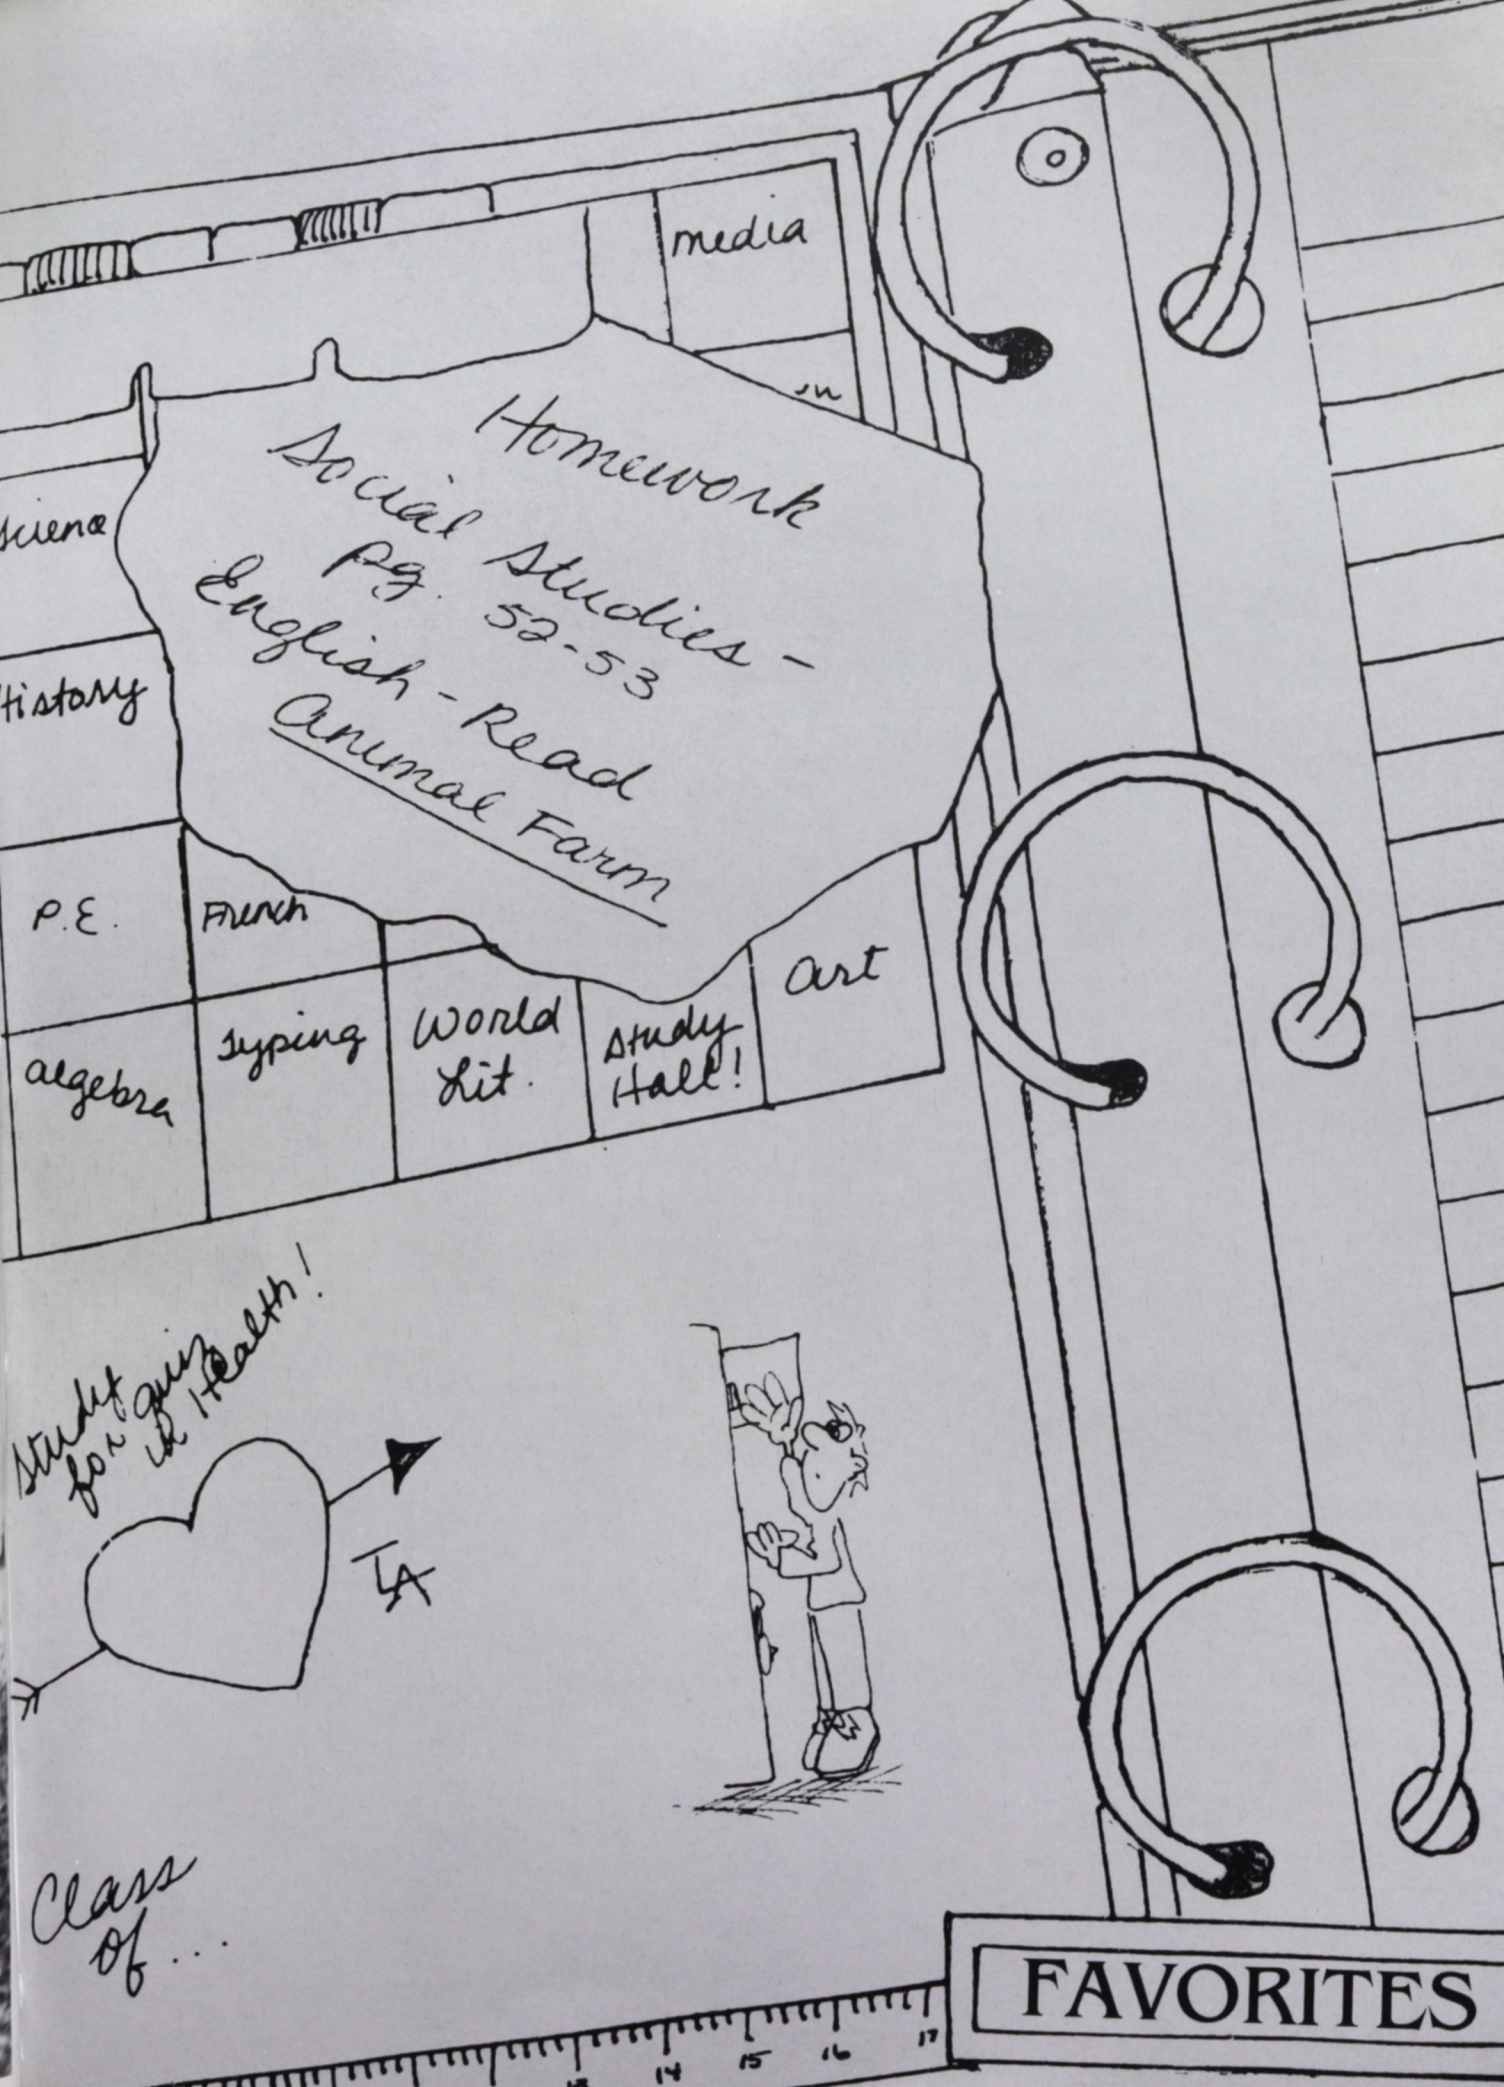 media
Homework
Social Studies -
pg. 52-53
English - Read
Animal Farm
Science
History
P.E.
French
Art
Algebra
Typing
World
Lit.
Study
Hall!
Study
for quiz
in Health!
Class
of...
FAVORITES
14 15 16 17